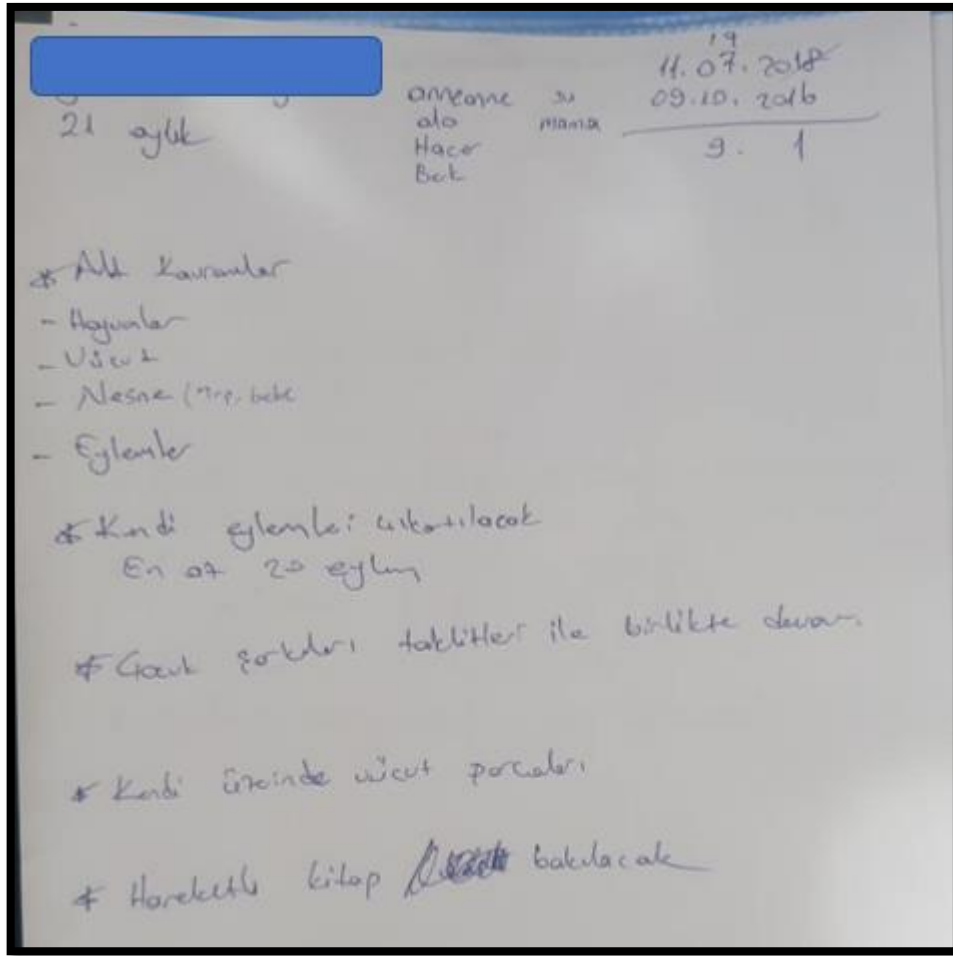 19
11.07.2018
anneanne su 09.10.2016
21 aylık alo mama
Hacer 9. 1
Berk
* Alt Kavramlar
- Hayvanlar
- Vücut
- Nesne (Top, bebe
- Eylemler
* Kendi eylemleri çıkartılacak
En az 20 eylem
* Çocuk şarkıları taklitleri ile birlikte devam.
* Kendi üzerinde vücut parçaları
* Hareketli kitap bakılacak